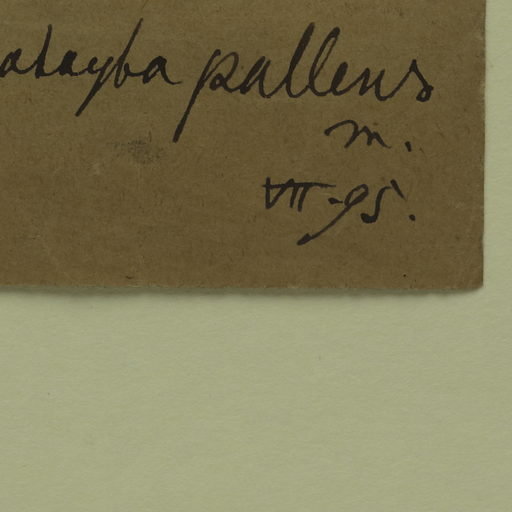 atayba pallens
m.
VII-95.